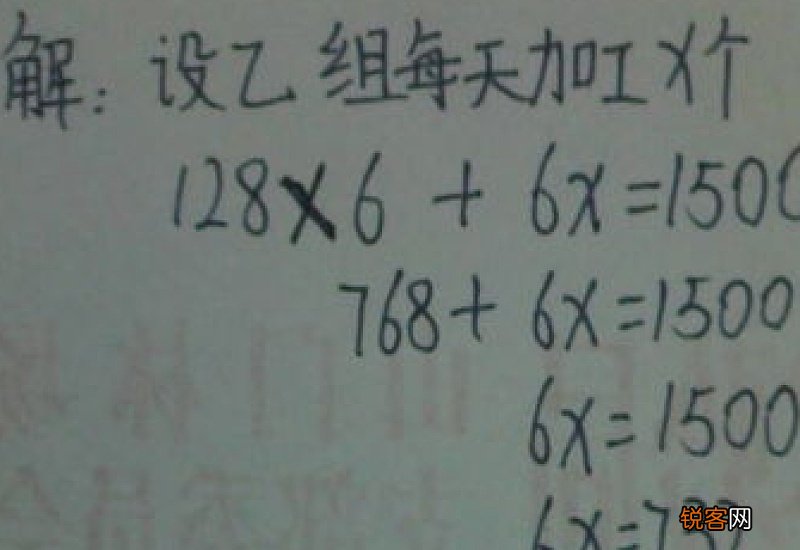 解：设乙组每天加工x个
128×6 + 6x=1500
768+ 6x=1500
6x=1500
6x=732
锐客网